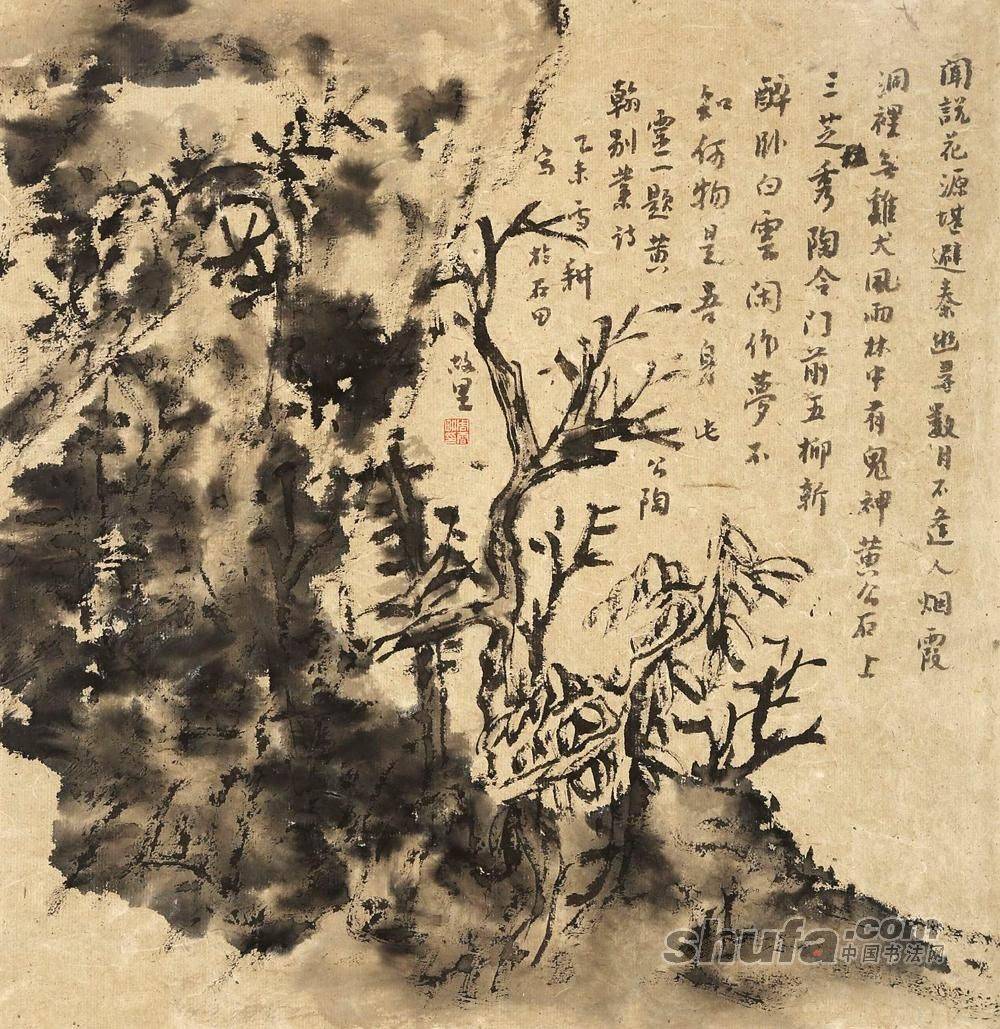 聞說花源堪避秦幽尋數月不逢人烟霞
洞裡無雞犬風雨林中有鬼神黃公石上
三芝秀陶令门前五柳新
醉卧白雲闲作夢不
知何物是吾身此
靈一題黄公陶
翰别業诗
乙未雪耕
写於石田
故里
shufa.com
中国书法网